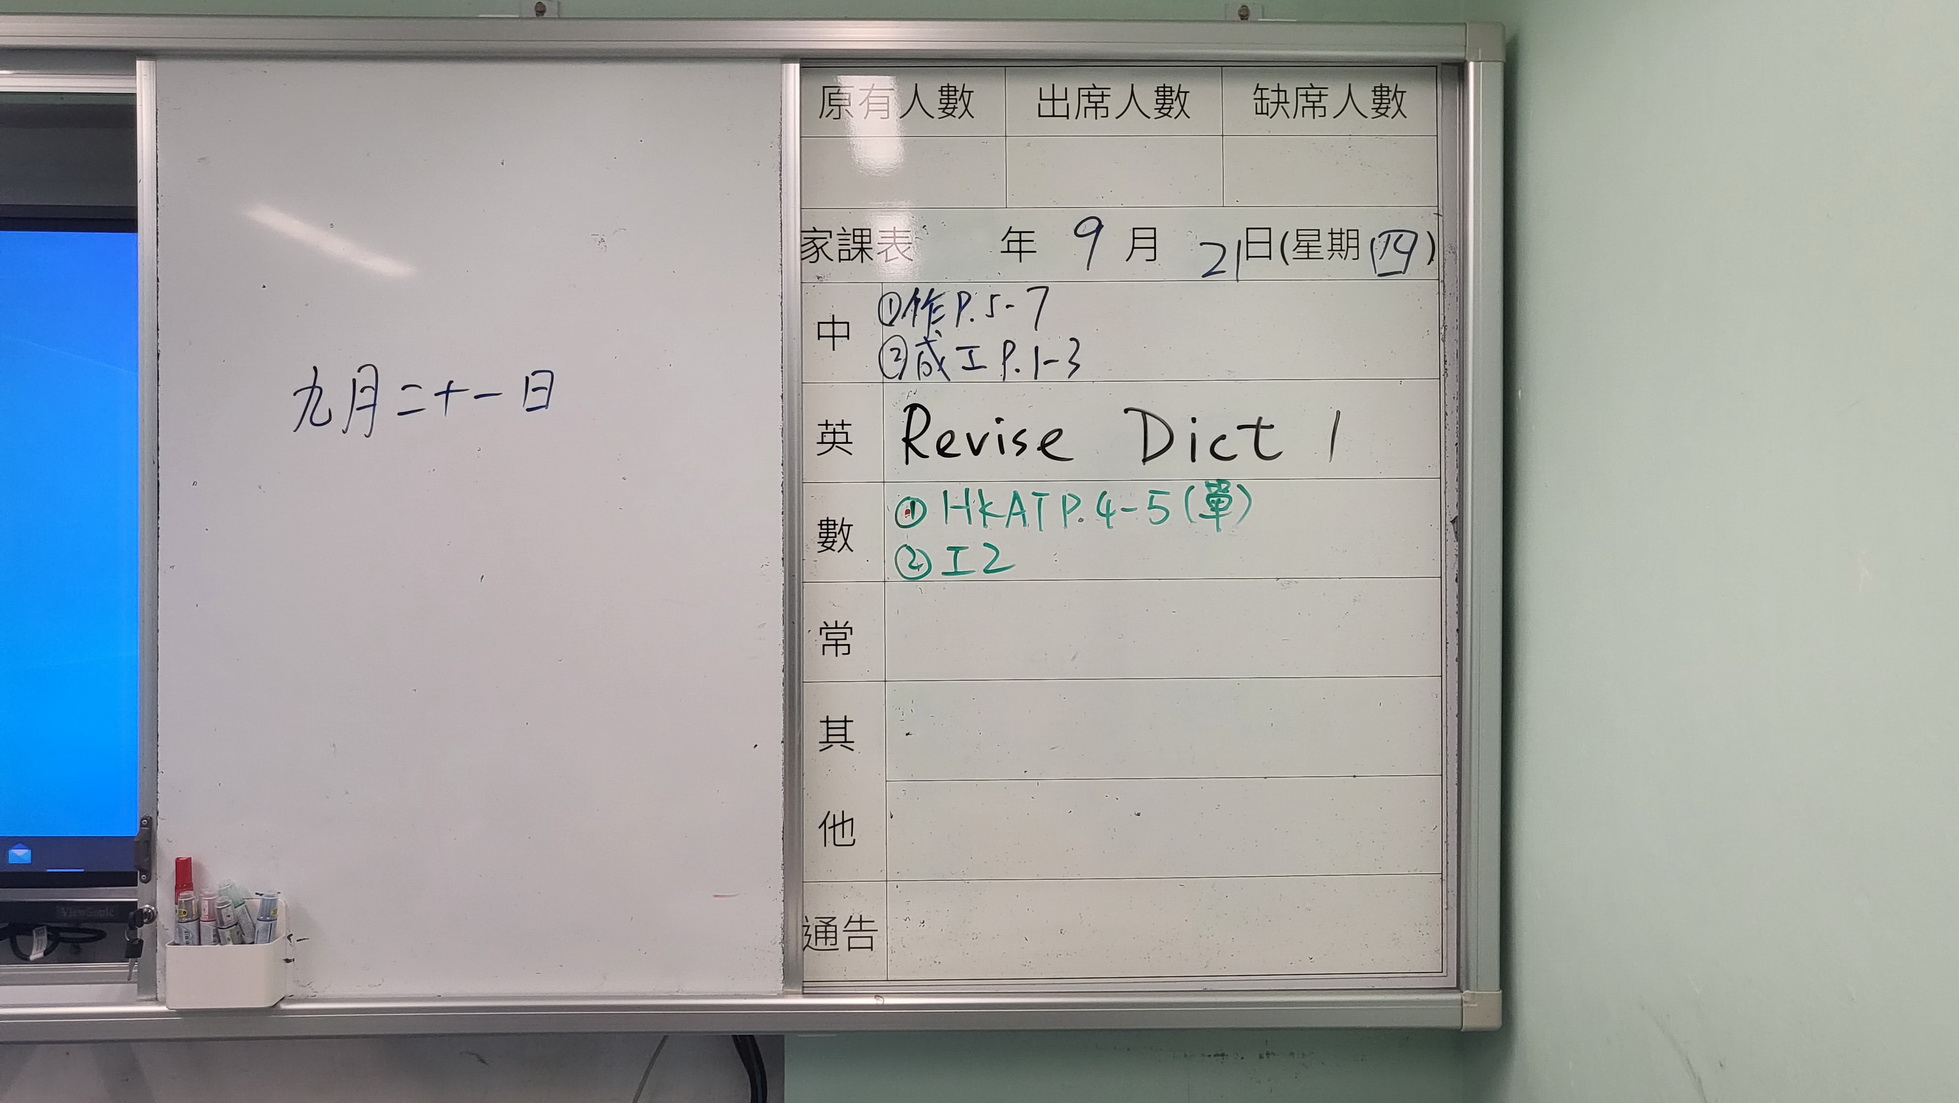 九月二十一日
原有人數 出席人數 缺席人數
家課表 年 9 月 21 日(星期(四))
中 ①作 P.5-7
②成工 P.1-3
英 Revise Dict 1
數 ①HKAT P.4-5(單)
②工2
常
其
他
通告
ViewSonic